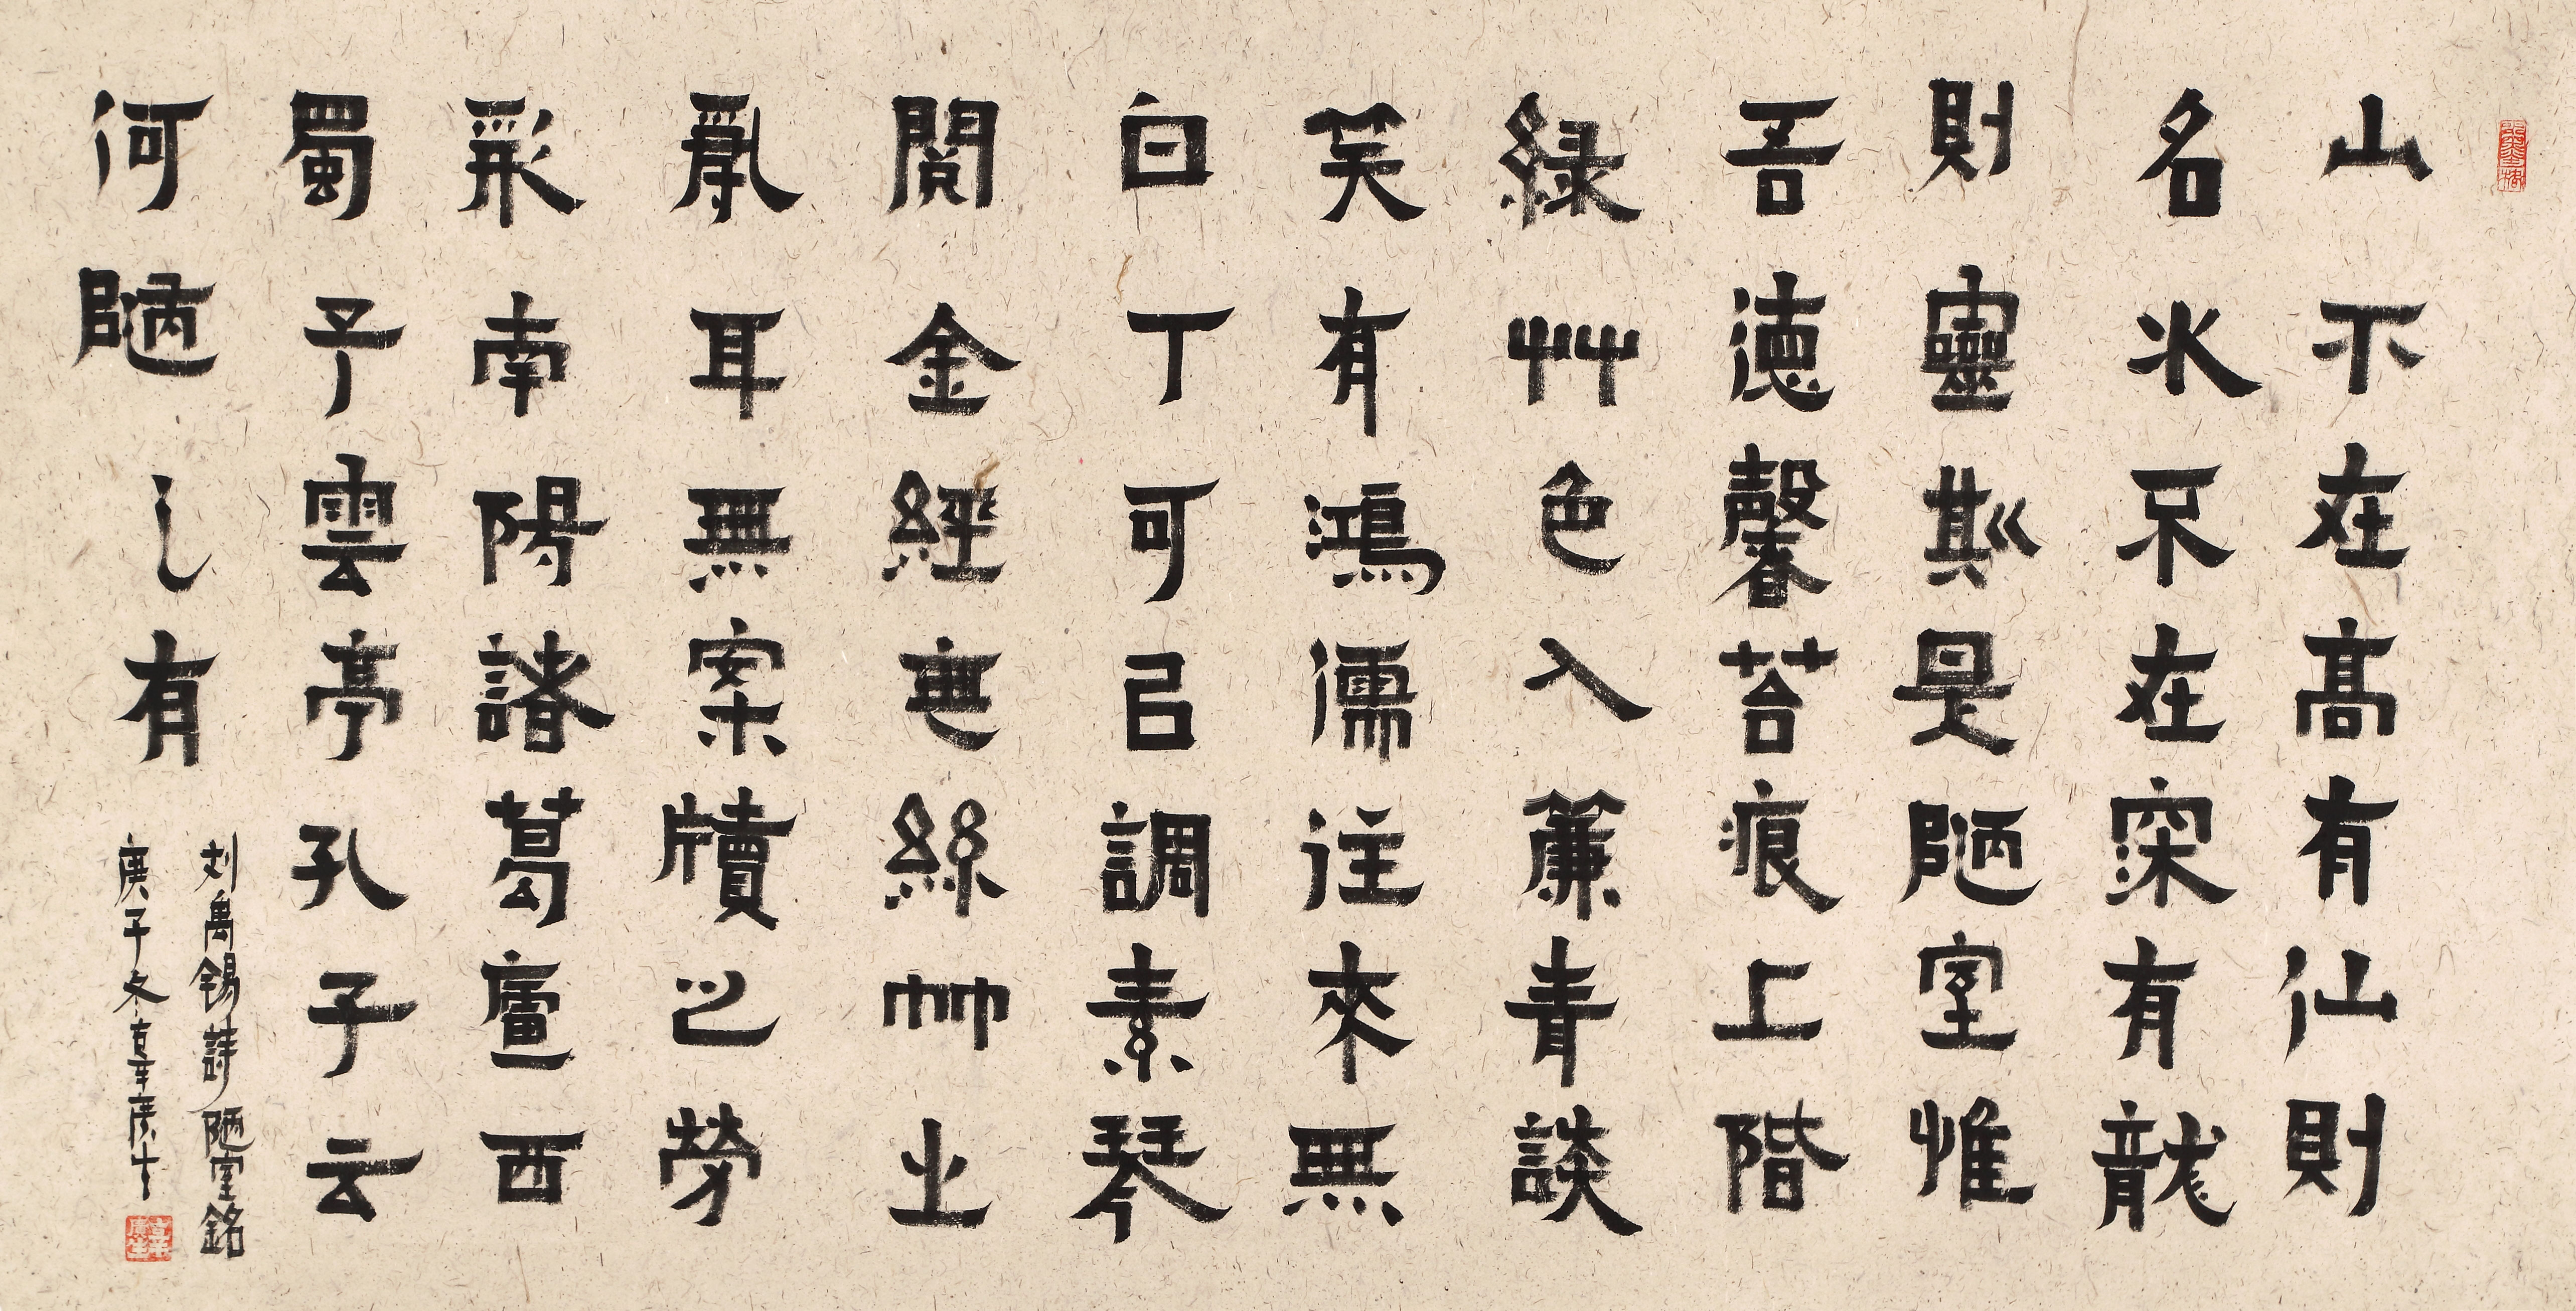 山不在高有仙則
名水不在深有龍
則靈斯是陋室惟
吾德馨苔痕上階
綠艸色入簾青談
笑有鴻儒往來無
白丁可㠯調素琴
閱金經無絲竹之
亂耳無案牘之勞
形南陽諸葛廬西
蜀子雲亭孔子云
何陋之有
刘禹锡詩陋室銘
庚子冬